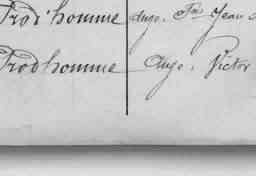 Prod'homme Augo. Fois Jean
Prodhomme Augo. Victor